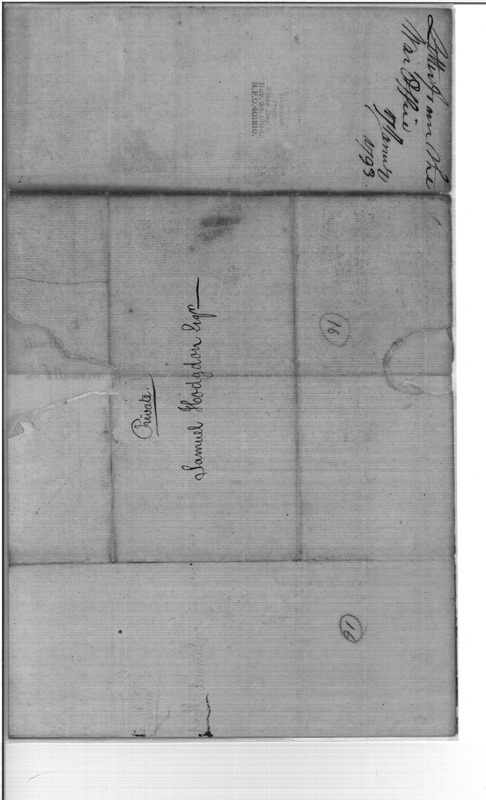 Letter from the
War Office
9 January
1793.
R.P.O. 401810.
Private.
Samuel Hodgdon Esqr
16
16